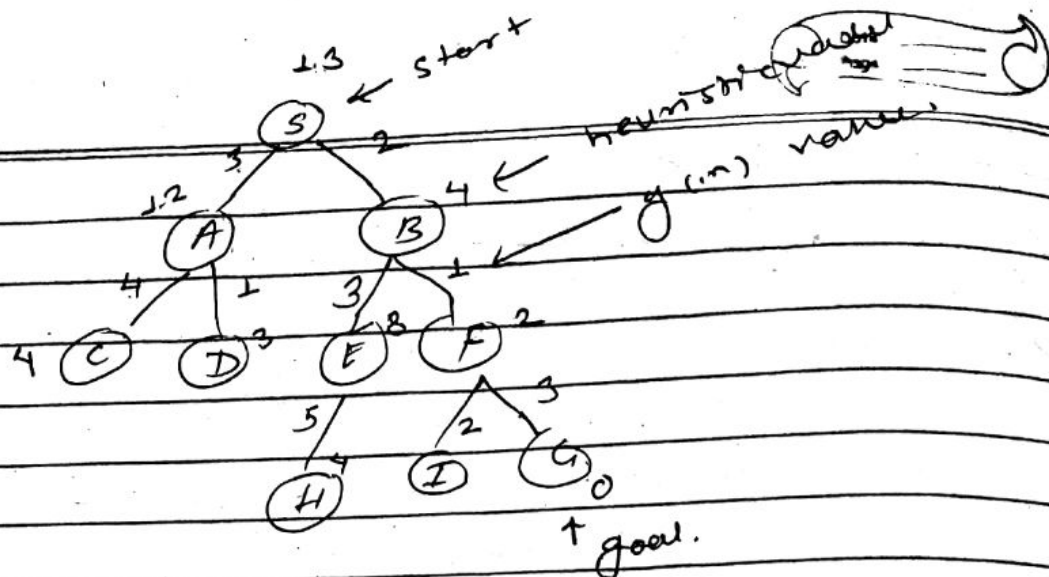 13
start
S
3 2
heuristic
value.
12 4
A B
g(n)
4 1 3 1
4 C D 3 E 8 F 2
5 2 3
H 4 I G 0
↑ goal.